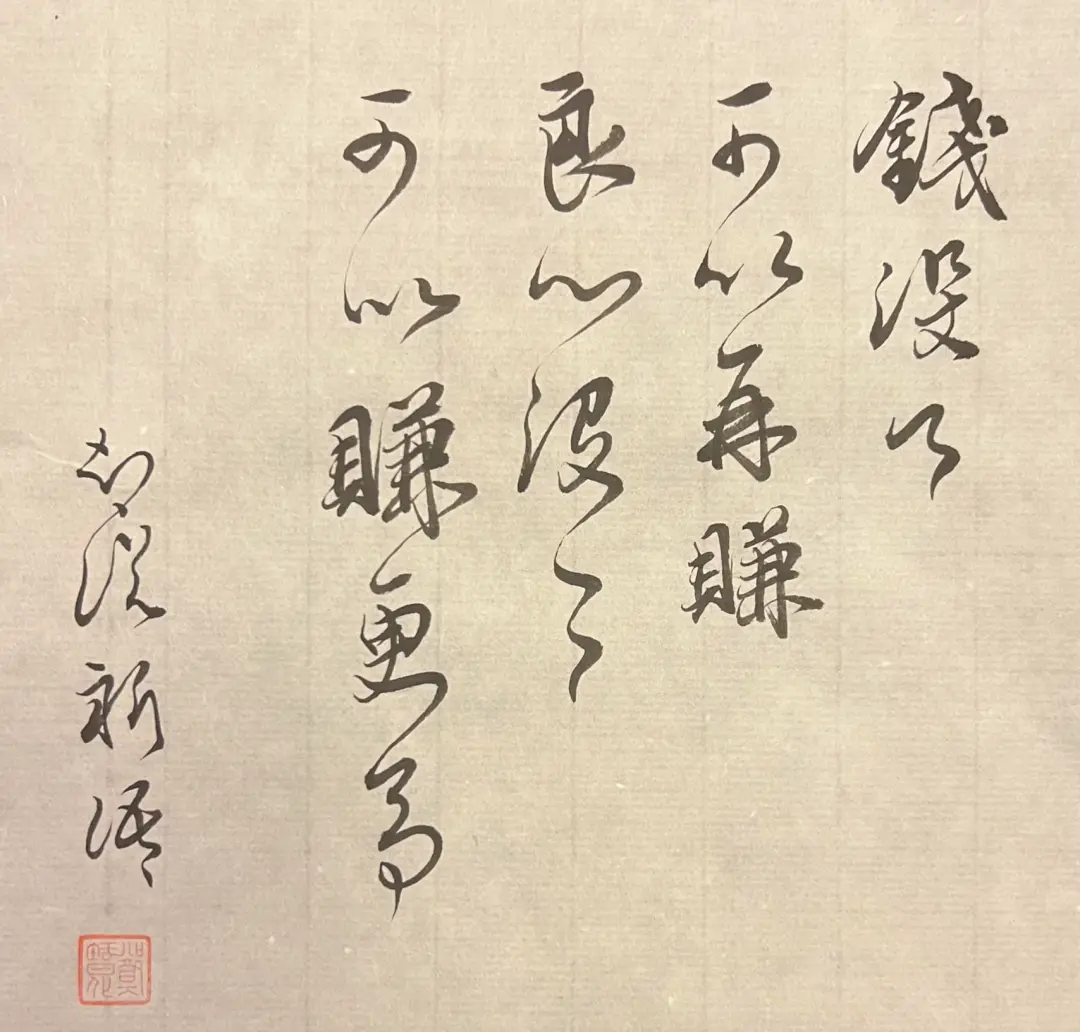 錢没了
可以再賺
良心没了
可以賺更多
説新語